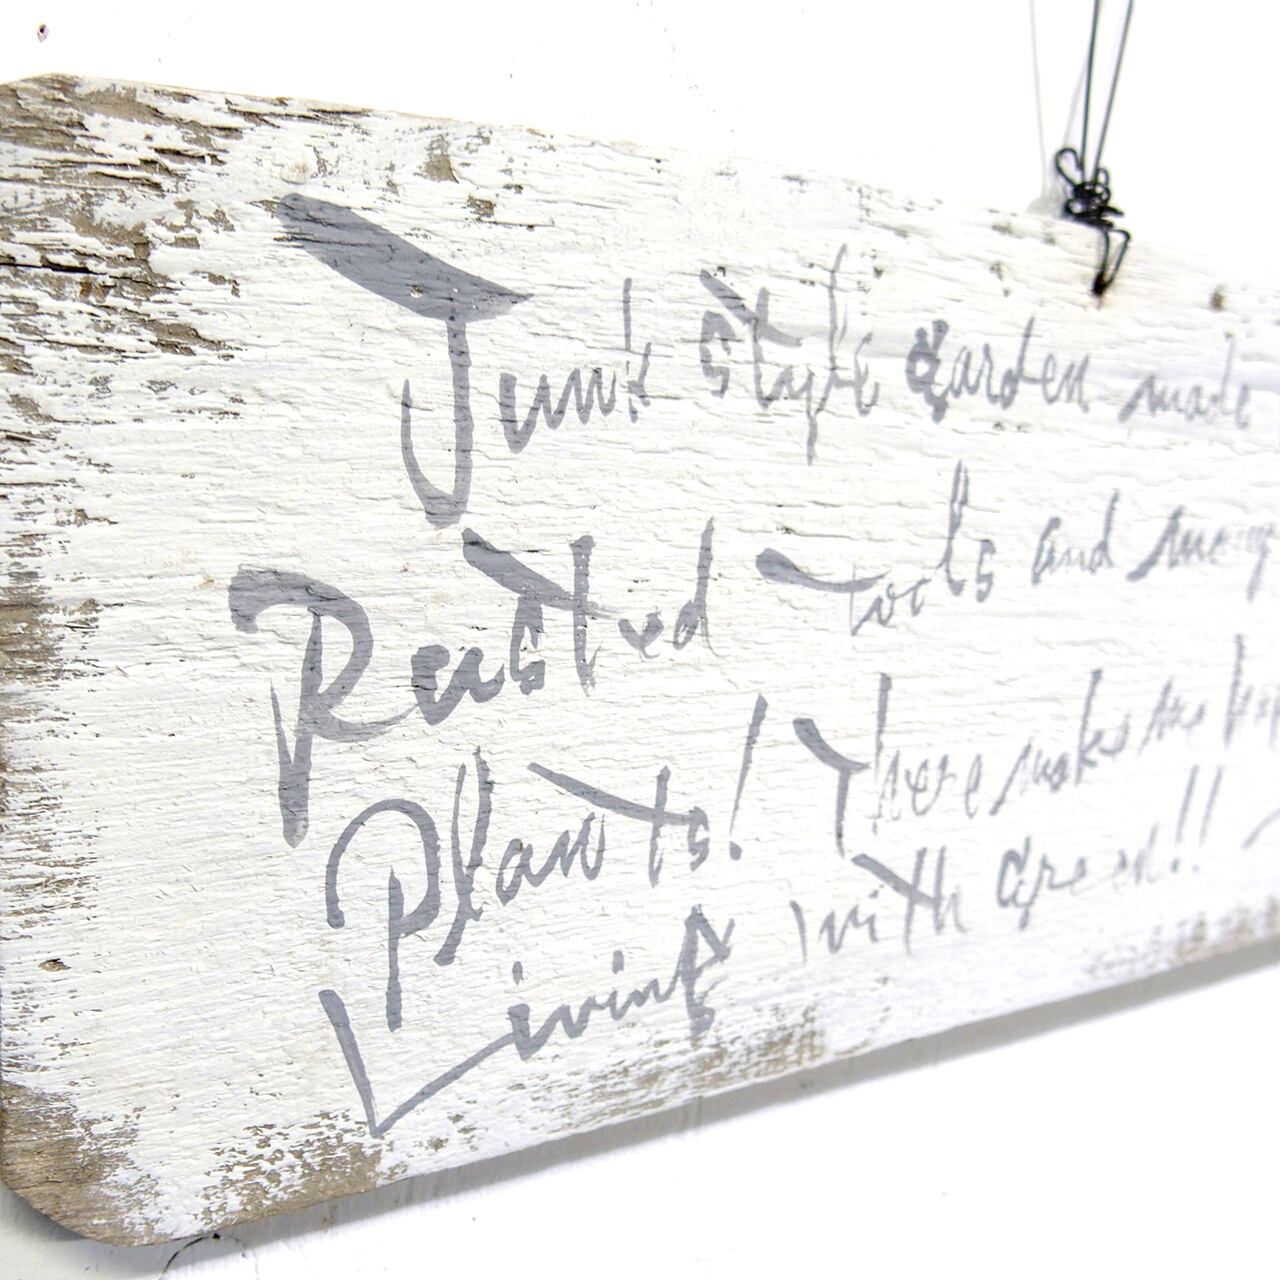 Junk style garden made
Rusted tools and many
Plants! There makes me
Living with Green!!